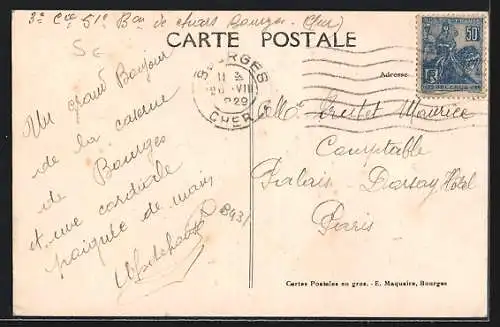 3e Cie 51e Bon de chars Bourges - (Cher)
5e
CARTE POSTALE
BOURGES
1929
CHER
50c
Adresse
Un grand Bonjour
de la caserne
de Bourges
et une cordiale
poignée de main
D8431
Maurice
Comptable
Palais - Dorsay Hôtel
Paris
Cartes Postales en gros. - E. Maquaire, Bourges